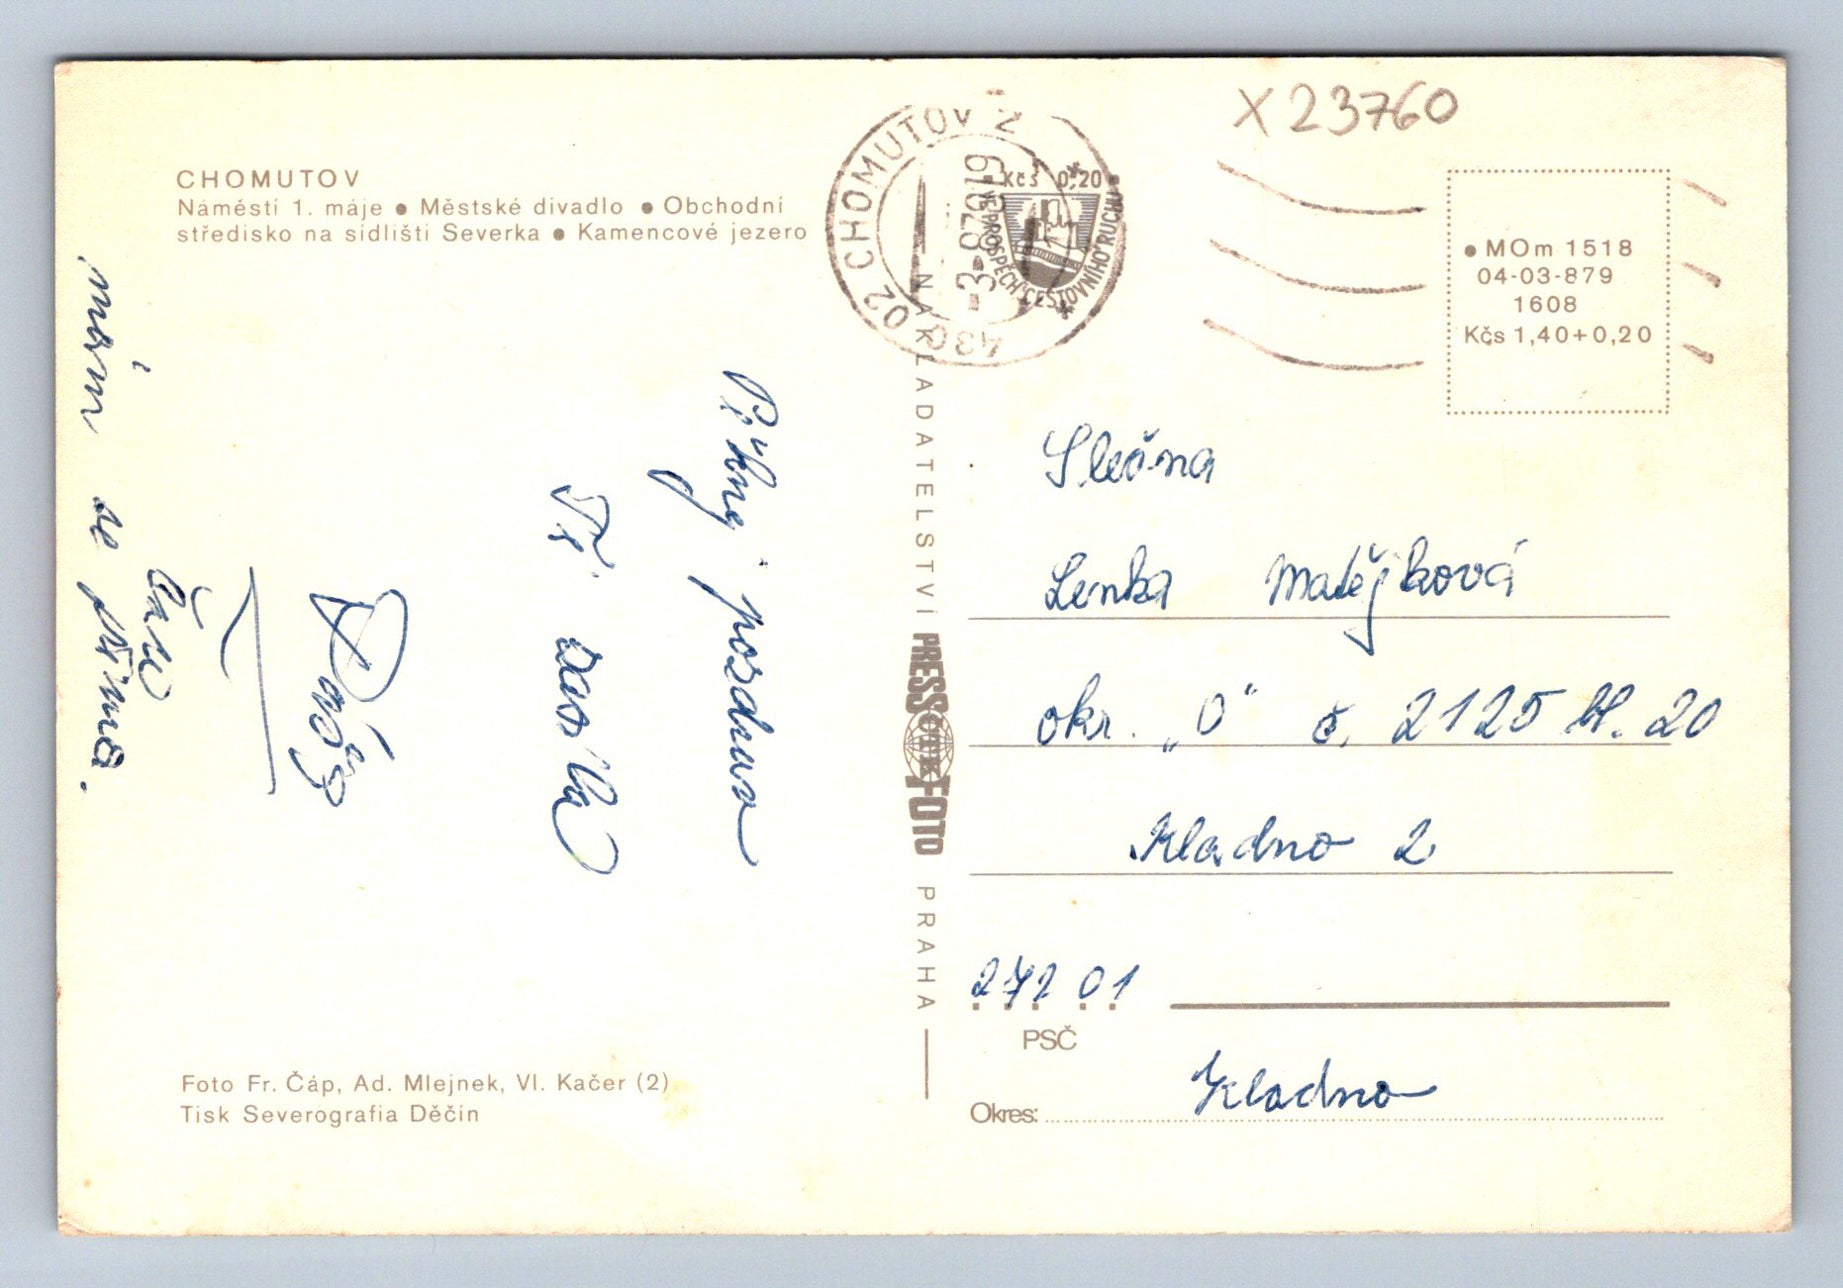 X 23760
CHOMUTOV
Náměstí 1. máje ● Městské divadlo ● Obchodní
středisko na sídlišti Severka ● Kamencové jezero
430 02 CHOMUTOV 2
Kčs 0,20
VE PROSPĚCH CESTOVNÍHO RUCHU
● MOm 1518
04-03-879
1608
Kčs 1,40+0,20
Pěkný pozdrav
Ti
mám se prima.
NAKLADATELSTVÍ PRESSFOTO PRAHA
ČTK
Slečna
Lenka Matějková
okr. „0" č. 2125 bl. 20
Kladno 2
272 01
PSČ
Okres: Kladno
Foto Fr. Čáp, Ad. Mlejnek, Vl. Kačer (2)
Tisk Severografia Děčín